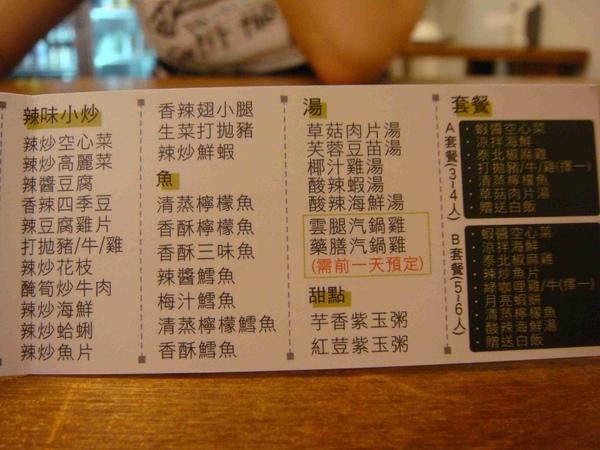 辣味小炒
辣炒空心菜
辣炒高麗菜
辣醬豆腐
香辣四季豆
辣豆腐雞片
打拋豬/牛/雞
辣炒花枝
醃筍炒牛肉
辣炒海鮮
辣炒蛤蜊
辣炒魚片
香辣翅小腿
生菜打拋豬
辣炒鮮蝦
魚
清蒸檸檬魚
香酥檸檬魚
香酥三味魚
辣醬鱈魚
梅汁鱈魚
清蒸檸檬鱈魚
香酥鱈魚
湯
草菇肉片湯
芙蓉豆苗湯
椰汁雞湯
酸辣蝦湯
酸辣海鮮湯
雲腿汽鍋雞
藥膳汽鍋雞
(需前一天預定)
甜點
芋香紫玉粥
紅荳紫玉粥
套餐
A套餐(3~4人)
·蝦醬空心菜
·涼拌海鮮
·泰北椒麻雞
·打拋豬/牛/雞(擇一)
·清蒸檸檬魚
·草菇肉片湯
·贈送白飯
B套餐(5~6人)
·蝦醬空心菜
·涼拌海鮮
·泰北椒麻雞
·辣炒魚片
·綠咖哩雞/牛(擇一)
·月亮蝦餅
·清蒸檸檬魚
·酸辣海鮮湯
·贈送白飯